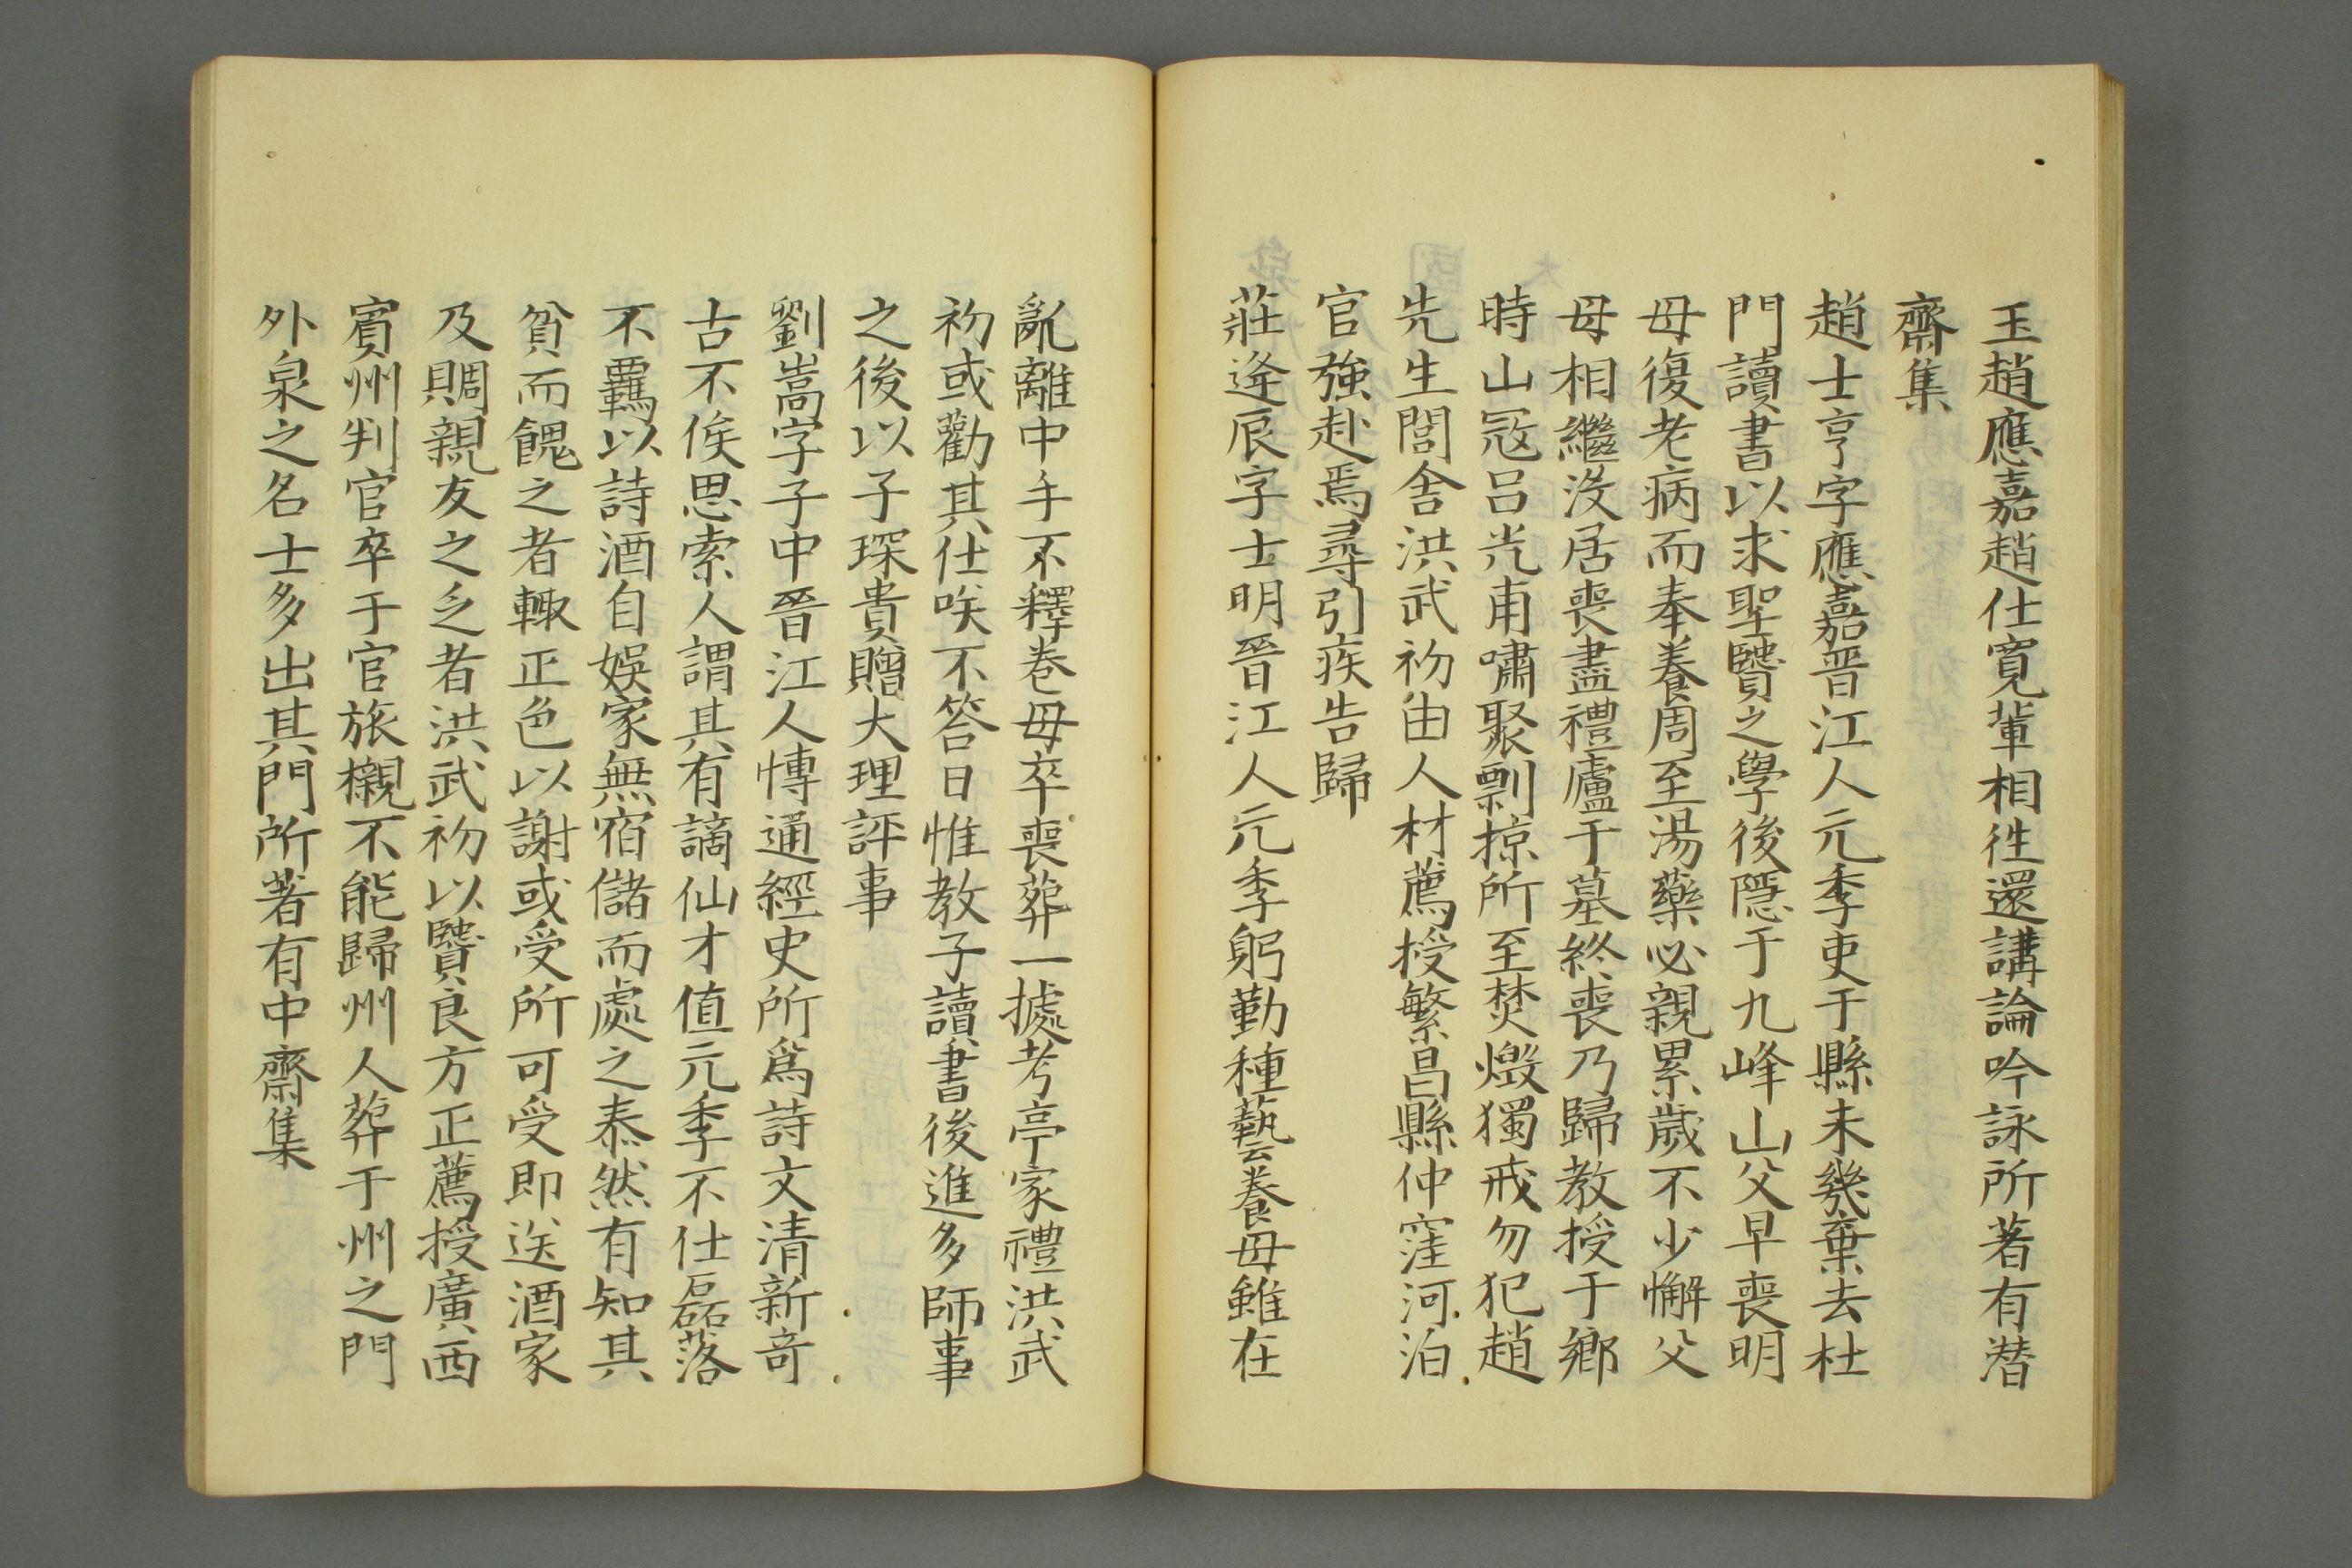 玉趙應嘉趙仕寬軰相徃還講論吟詠所著有潜
齋集
趙士亨字應嘉晋江人元季吏于縣未幾棄去杜
門讀書以求聖賢之學後隱于九峰山父早喪明
母復老病而奉養周至湯藥必親累歲不少懈父
母相繼沒居喪盡禮廬于墓終喪乃歸教授于鄉
時山冦呂光甫嘯聚剽掠所至焚燬獨戒勿犯趙
先生閭舍洪武初由人材薦授繁昌縣仲窪河泊
官強赴焉尋引疾告歸
莊逄辰字士明晉江人元季躬勤種藝養母雖在
亂離中手不釋卷母卒喪葬一據考亭家禮洪武
初或勸其仕唉不答日惟教子讀書後進多師事
之後以子琛貴贈大理評事
劉嵩字子中晉江人愽通經史所爲詩文清新竒
古不俟思索人謂其有謫仙才值元季不仕磊落
不羈以詩酒自娛家無宿儲而處之泰然有知其
貧而餽之者輙正色以謝或受所可受即送酒家
及賙親友之乏者洪武初以賢良方正薦授廣西
賓州判官卒于官旅櫬不能歸州人葬于州之門
外泉之名士多出其門所著有中齋集